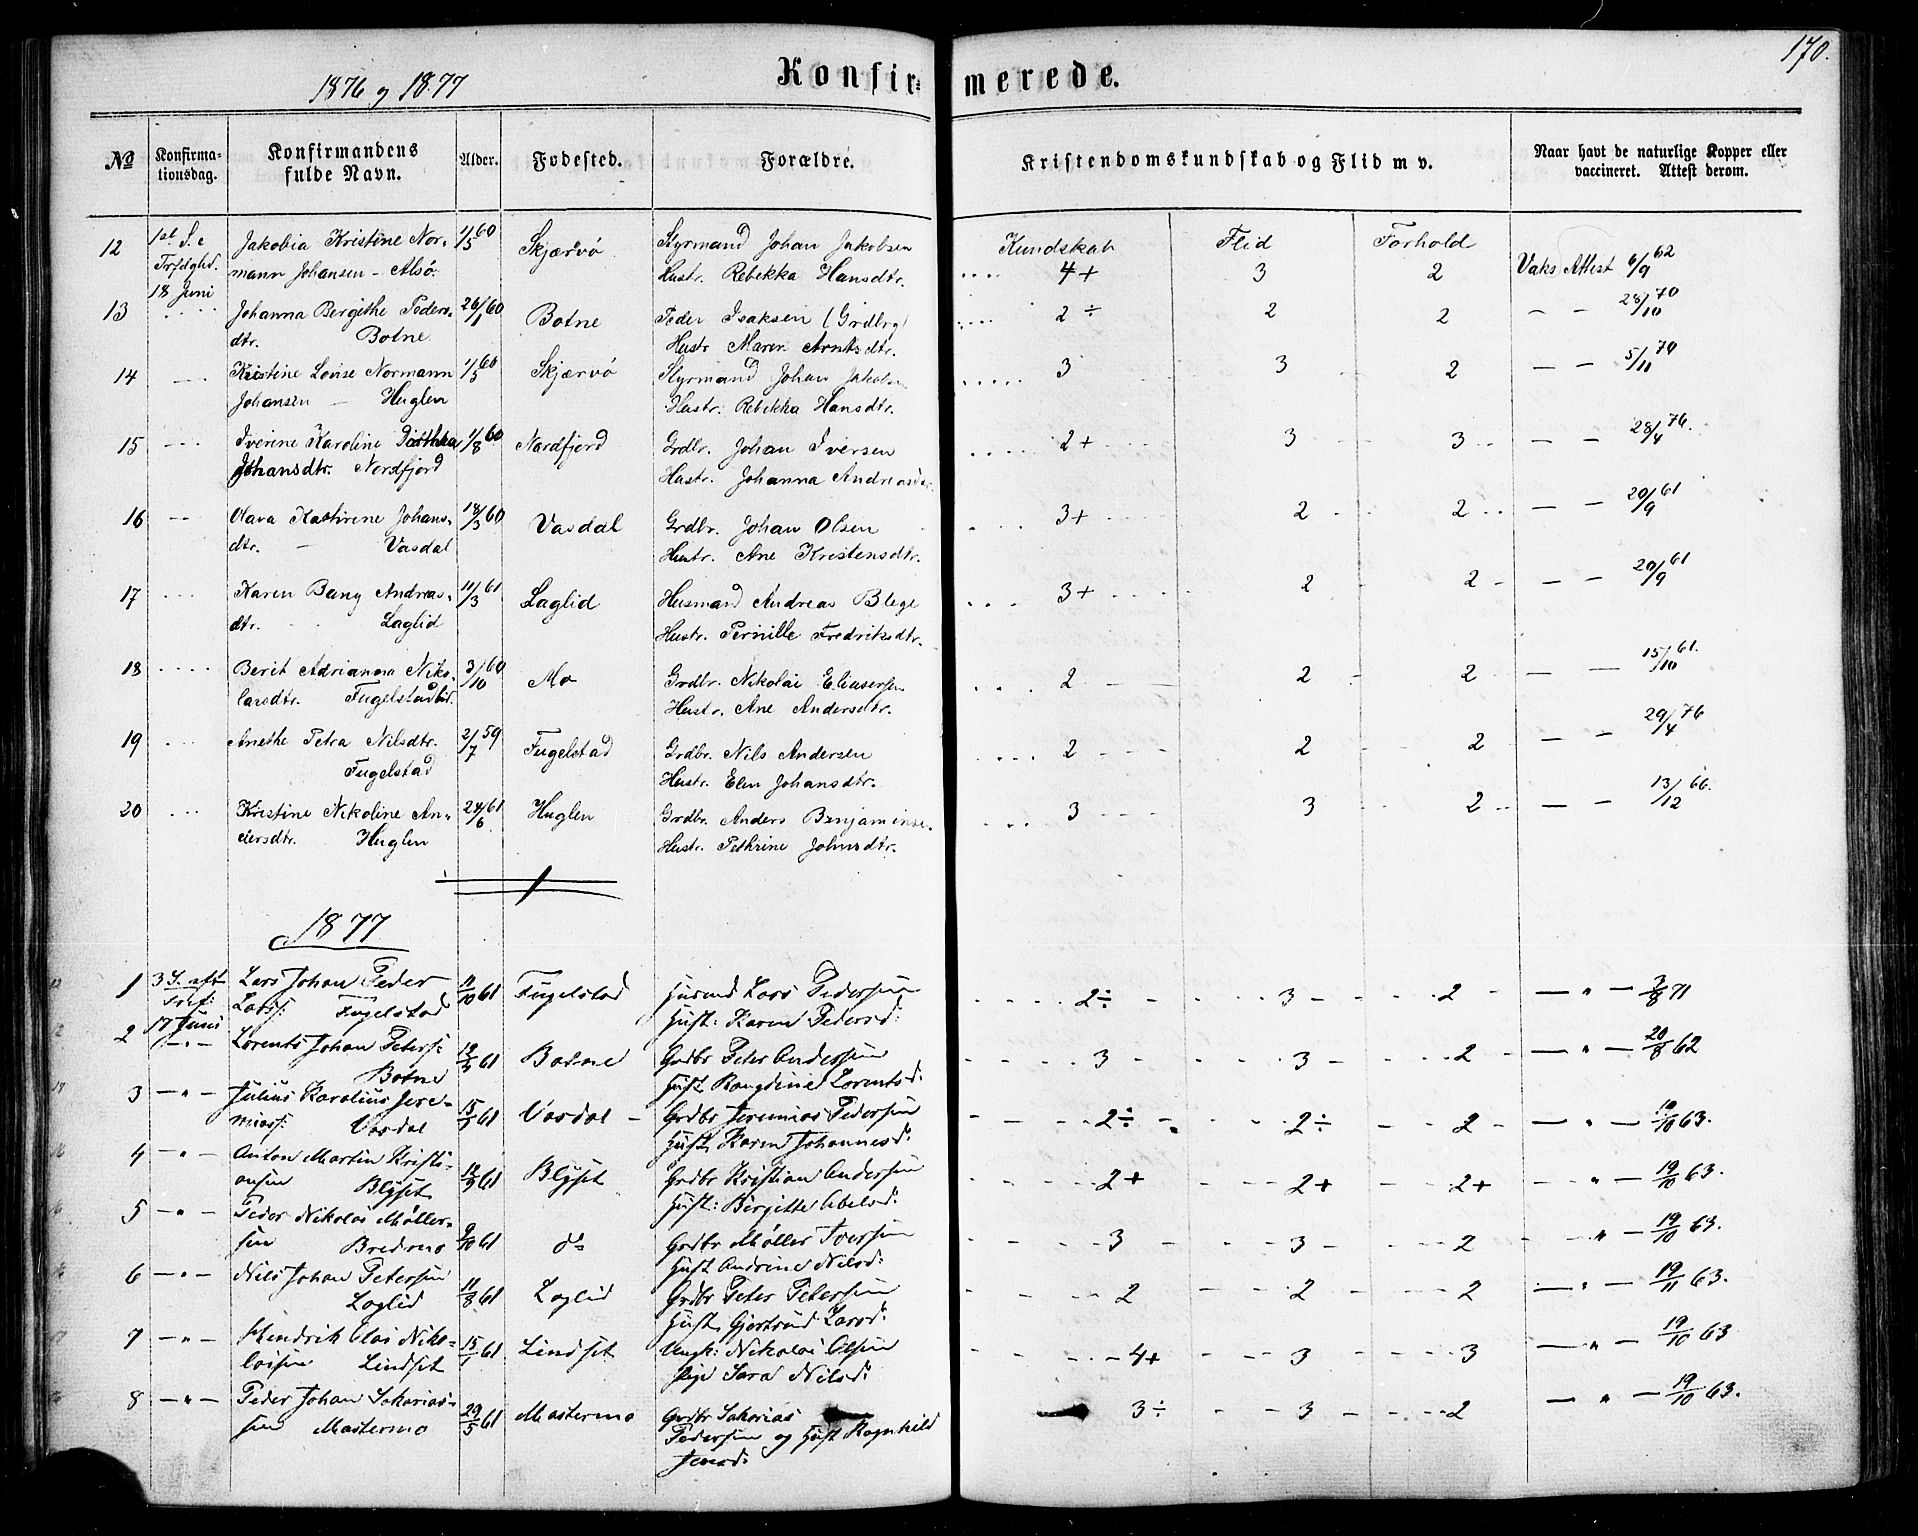 170.
1876 og 1877
Konfirmerede.
No
Konfirmationsdag.
Konfirmandens fulde Navn.
Alder.
Fødested.
Forældre.
Kristendomskundskab og Flid m v.
Naar havt de naturlige Kopper eller vaccineret. Attest derom.
Kundskab Flid Forhold
12 1st S. e Jakobia Kristine Nor- 1/5 60 Skjærvö Styrmand Johan Jakobsen
Trfdghd. mann Johansen - Alsö. Hustr. Rebekka Hansdtr. 4+ 3 2 Vaks Attest 6/9 62
18 Juni
13 Johanna Bergithe Peders- 26/1 60 Botne Peder Isaksen (Grdbrg) 2÷ 2 2 - - 28/10 70
dtr. Botne Hustr Maren Arntsdtr.
14 Kristine Lovise Normann 1/5 60 Skjærvö Styrmand Johan Jakobsn 3 3 2 - - 5/10 70
Johansen - Huglen Hustr: Rebekka Hansdtr.
15 Iverine Karoline 11/8 60 Nordfjord Grdbr. Johan Iversen 2+ 3 3 - - 28/4 76.
Johansdtr. Nordfjord Hustr. Johanna Andreasdtr.
16 Olava Kathrine Johans- 18/3 60 Vasdal Grdbr. Johan Olsen 3+ 2 2 - - 20/9 61
dtr. - Vasdal Hustr. Ane Kristensdtr.
17 Karen Bang Andreas- 11/3 61 Laglid Husmand Andreas Blege 3+ 2 2 - - 20/9 61
dtr. Laglid Hustr. Pernille Fredriksdtr.
18 Berit Adrianna Niko- 3/10 60 Mo Grdbr. Nikolai Eliasersen 2 2 2 - - 15/10 61.
laisdtr. Fugelstadlid. Hustr. Ane Andersdtr.
19 Anethe Petra Nilsdtr. 2/7 59 Fugelstad Grdbr. Nils Andersen 2 2 2 - - 29/4 76
Fugelstad Hustr. Elen Johansdtr.
20 Kristine Nikoline An- 24/6 61 Huglen Grdbr. Anders Benjaminse. 3 3 2 - - 13/12 66.
dersdtr. Huglen Hustr. Pethrine Johnsdtr.
1877
1 3 S. eft Lars Johan Peder 11/10 61 Fugelstad Husmd Lars Pedersen 2÷ 3 2 - " - 3/8 71
Tref: Larss: Fugelstad Hust: Karen Pedersd:
17 Juni
2 - " - Lorents Johan Peters: 61 Botne Grdbr Peter Andersen 3 3 2 - " - 20/8 62
Botne Hust Rangdine Lorentsd:
3 - " - Julius Karolius Jere- 61 Vasdal - Grdbr Jeremias Pedersen 2÷ 2÷ 2 - " - 19/10 63.
miass: Vasdal Hust, Karen Johannesd:
4 - " - Anton Martin Kristi- 61 Blyset Grdbr Kristian Andersen 2+ 2+ 2+ - " - 19/10 63.
ansen Blyset Hust: Bergitte Abelsd:
5 - " - Peder Nikolai Møller- 9/10 61 do Grdbr Møller Iversen 3 3 2 " - 19/10 63.
sen Bredmo Hust Andrine Nilsd:
6 - " - Nils Johan Petersen 11/8 61 Laglid Grdbr Peter Petersen 2 2 2 - " - 19/11 63.
Laglid Hust, Gjertrud Larsd:
7 - " - Hendrik Olai Niko- 15/1 61 Lindset Ungk: Nikolai Olsen 4+ 3 3 - " - 19/10 63
laisen Lindset Pige Sara Nilsd:
8 - " - Peder Johan Sakarias- 29/5 61 Mastermo Grdbr Sakarias 3÷ 3 2 - " - 19/10 63.
sen Mastermo Pedersen og Hust Ragnhild
Jensd: